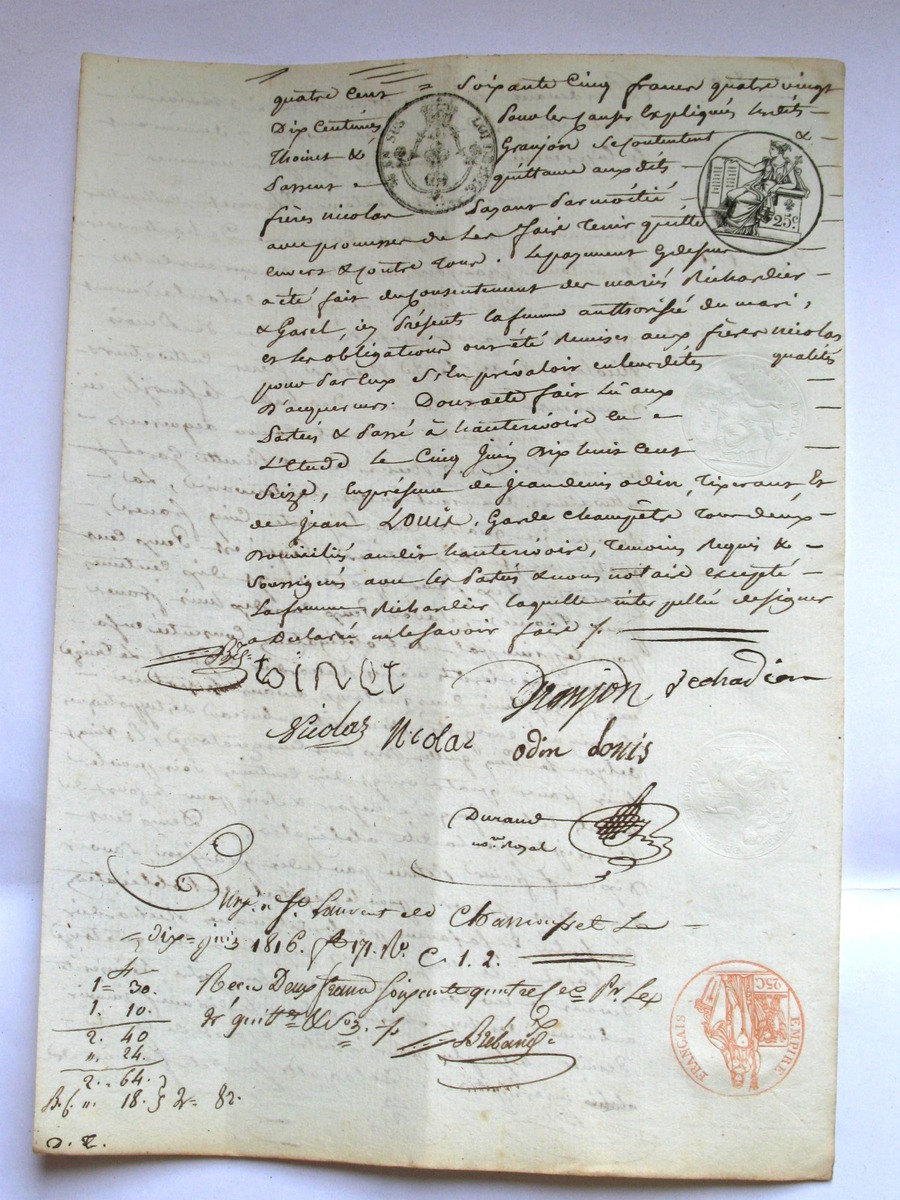 quatre cent = Soixante Cinq francs quatre vingt
Dix Centimes pour les causes Expliquées lesdits
Thoinet & Granjon Se Contentent &
Passent quittance auxdits
frères nicolas payant par moitié
avec promesse de les faire Tenir quitte
envers & contre Tous. Le payement cydessus
a été fait du Consentement des mariés Richardier
& Garel, icy présents la femme authorisée du mari,
et les obligations ont été Remises aux frères nicolas
pour par Eux S'En prévaloir en leurdites qualités
D'acquereurs. Dont acte fait Lû aux
Parties & Passé à hauterivoire En
L'Etude le Cinq Juin Dix huit Cent
Seize, En présence de Jean denis odin, Tixerant Et
de Jean Louis, Garde Champêtre Tous deux
Domiciliés audit hauterivoire, Temoins Requis &
Soussignés avec les Parties & nous notaire excepté
La femme Richardier laquelle interpellée de signer
a Déclaré ne le savoir faire /.
toinet Granjon
Nicolas Nicolas odin Louis
Durand
no.re Royal
St. Laurent de Chamousset Le
dix juin 1816. fo 171. Ro. C. 1. 2.
Reçu Deux francs soixante quatre c.es Pr. Les
dr. quitt.ce
1 = 30.
1. 10.
2. 40
" 24.
2. 64.
" 18. } 2 = 82.
25c.
EMPIRE FRANÇAIS
25C